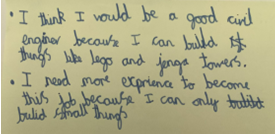 • I think I would be a good civil
enginer because I can build
things like lego and jenga towers.
• I need more exprience to become
this job because I can only
bulid small things